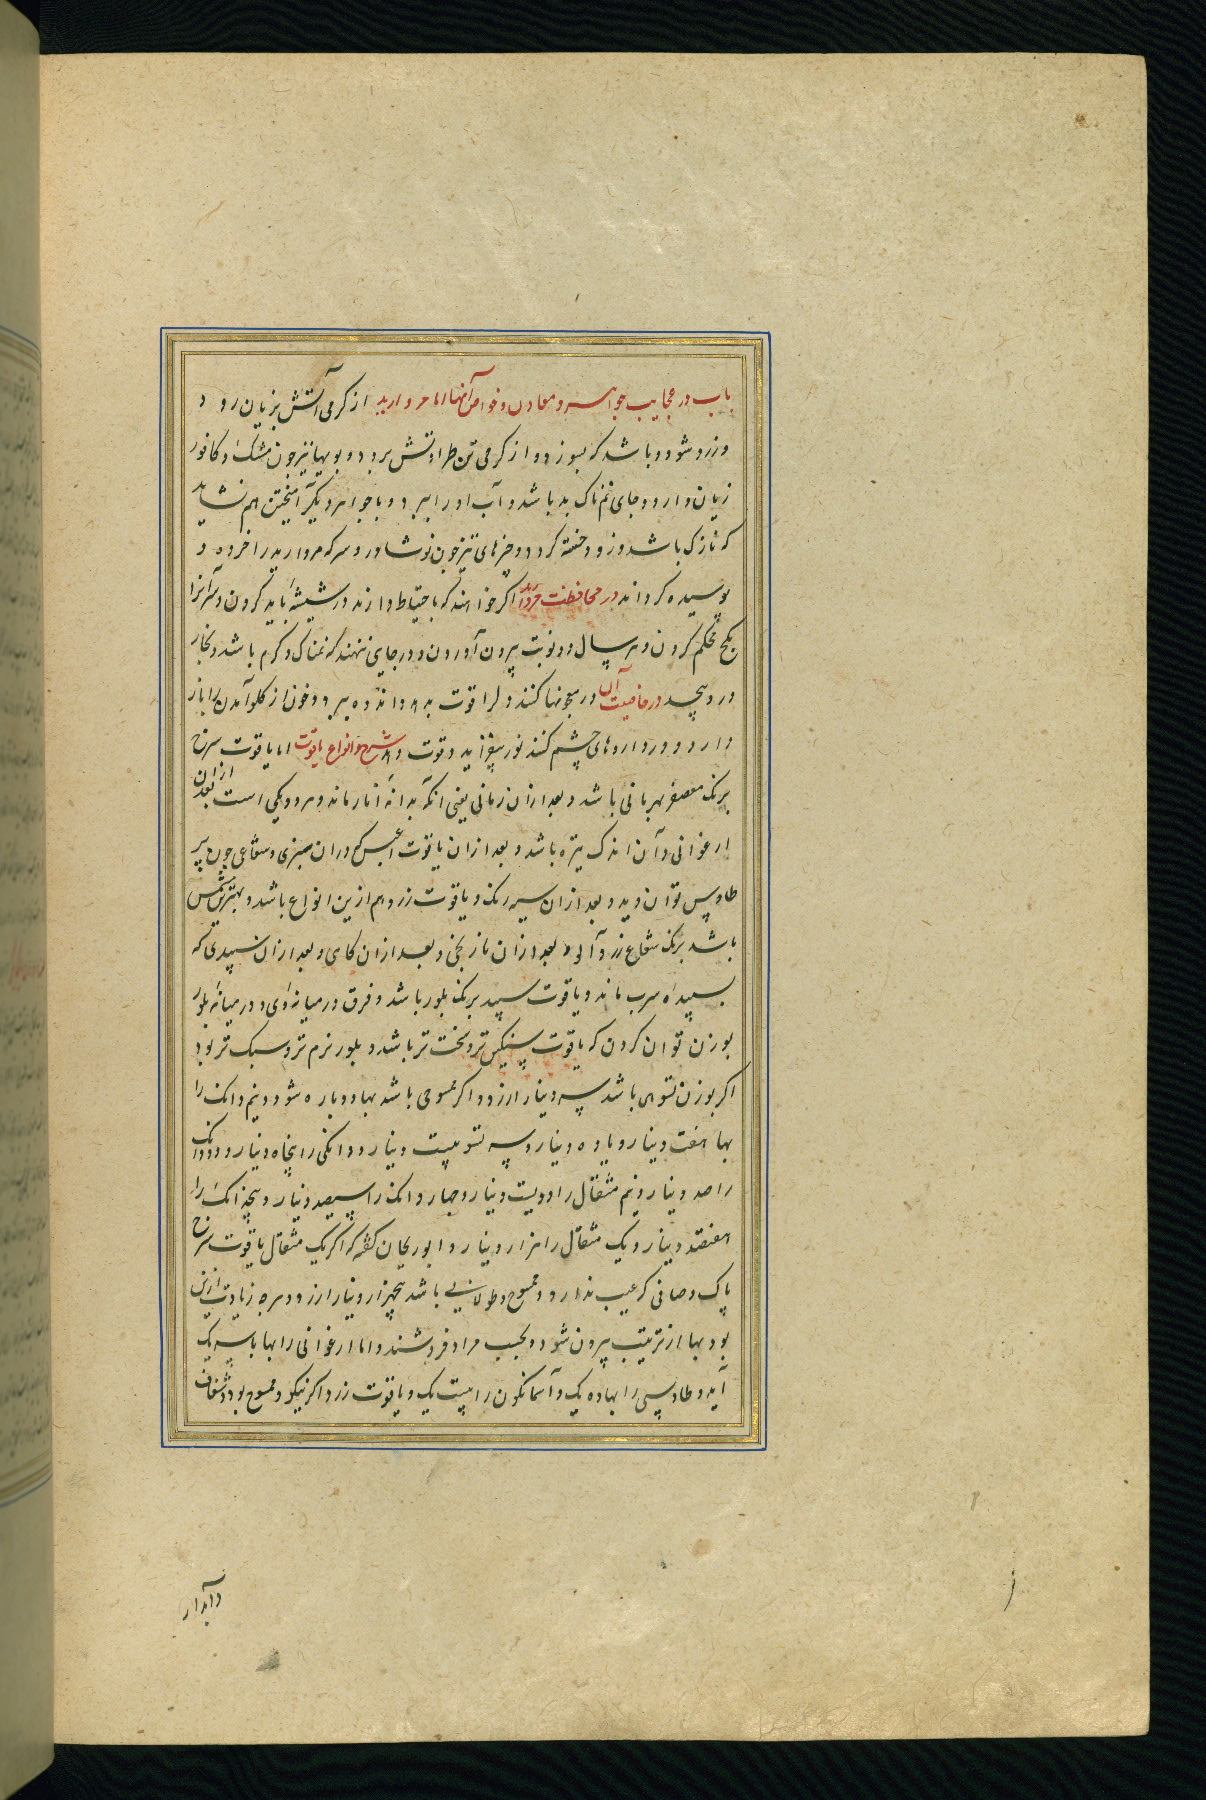 باب در عجایب جواهر و معادن و خواص آنها اما مروارید از کرمی آتش بزیان رود و
و زرد شود و باشد که بسوزد و از کرمی تن طراوتش برود و بویهای تیز چون مشک و کافور
زیان دارد و جای نمناک بد باشد و آب او را ببرد و با جواهر دیکر آمیختن هم نشاید
که نازک باشد و زود خسته کردد و چیزهای تیز چون نوشادر و سرکه مروارید را خرده و
پوسیده کرداند در محافظت مروارید اکر خواهند که باحتیاط دارند در شیشه باید کردن و سر آنرا
بکج محکم کردن و هر سال دو نوبت بیرون آوردن و در جایی ننهند که نمناک و کرم باشد و بخار
درو پیچد در خاصیت آن در معجونها کنند دل را قوت بدهد و اندوه ببرد و خون از کلو آمدن را باز
دارد و در داروهای چشم کنند نور بیفزاید و قوت دهد شرح انواع یاقوت اما یاقوت سرخ
برنک معصفر بهرمانی باشد و بعد ازان رمانی یعنی انکه بدانه انار ماند و هر دو یکی است بعد ازان
ارغوانی و آن اندک تیره باشد و بعد ازان یاقوت دران سبزی و شعاعی چون پر
طاوس توان دید و بعد ازان سیه رنک و یاقوت زرد هم ازین انواع باشد و بهترینش شمس
باشد برنک شعاع زرد آلو و بعد ازان نارنجی و بعد ازان کاهی و بعد ازان سپیدی که
بسپیداه سرب ماند و یاقوت سپید برنک بلور باشد و فرق در میانه وی و در میانه بلور
بوزن توان کردن که یاقوت سنکین تر و سخت تر باشد و بلور نرم تر و سبک تر بود
اکر بوزن تسوی باشد سه دینار ارزد و اکر ممسوح باشد بها دوباره شود و نیم دانک را
بها هفت دینار و یا ده دینار و سه تسو بیست دینار و دانکی را پنجاه دینار و دو دانک
را صد دینار و نیم مثقال را دویست دینار و چهار دانک را سیصد دینار و پنج دانک را
هفتصد دینار و یک مثقال را هزار دینار و ابوریحان کفته که اکر یک مثقال یاقوت سرخ
پاک و صافی که عیب ندارد و ممسوح و طولانی باشد پنجهزار دینار ارزد و هرچه زیادت ازین
بود بها از ترتیب بیرون شود و بحسب مراد فروشند و اما ارغوانی را بها با سه یک
آید و طاوسی را بها ده یک و آسمانکون را بیست یک و یاقوت زرد اکر نیکو و ممسوح بود و شفاف
و آبدار